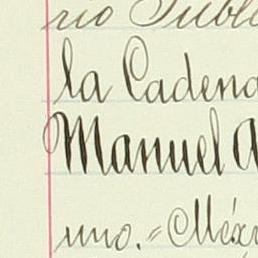 rio Públi
la Cadena
Manuel A
uno.=Méx